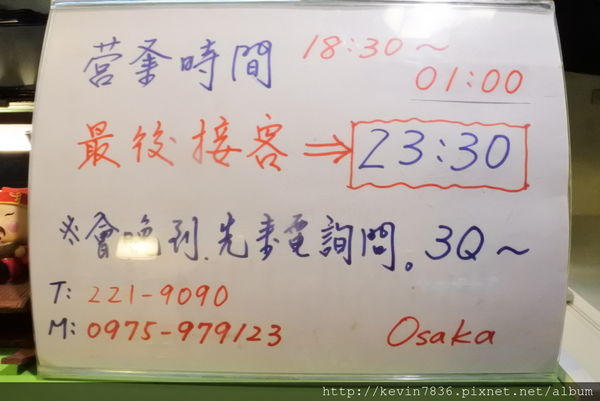 营業時間 18:30～
01:00
最後接客⇒23:30
※會晚到.先來電詢問。3Q～
T: 221-9090
M: 0975-979123 Osaka
http://kevin7836.pixnet.net/album